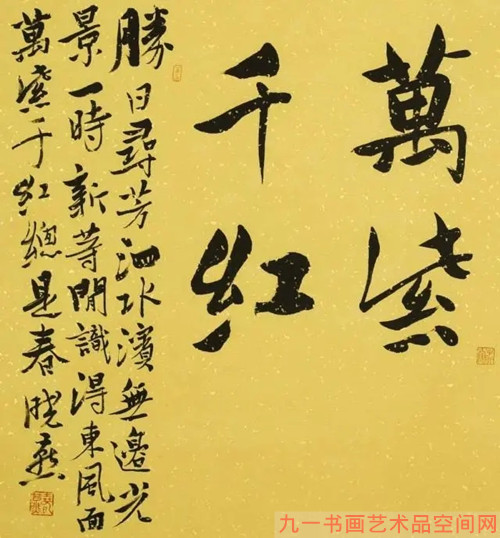 萬紫
千紅
勝日尋芳泗水濱無邊光
景一時新等閒識得東風面
萬紫千紅總是春曉燕
九一书画艺术品空间网